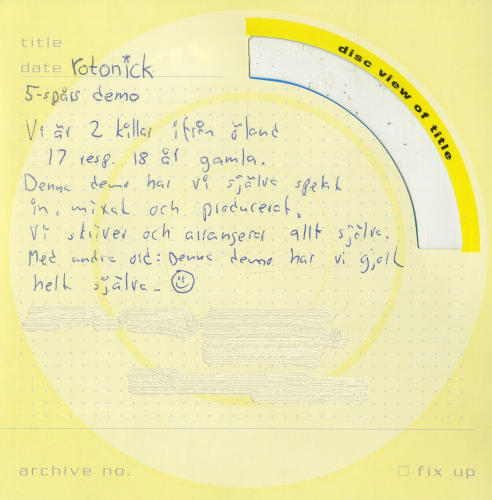 title
disc view of title
date rotonick
5-spårs demo
Vi är 2 killar ifrån öland
17 resp. 18 år gamla.
Denna demo har vi själva spelat
in, mixat och producerat.
Vi skriver och arrangerar allt själva.
Med andra ord: Denna demo har vi gjort
helt själva.
archive no.
fix up